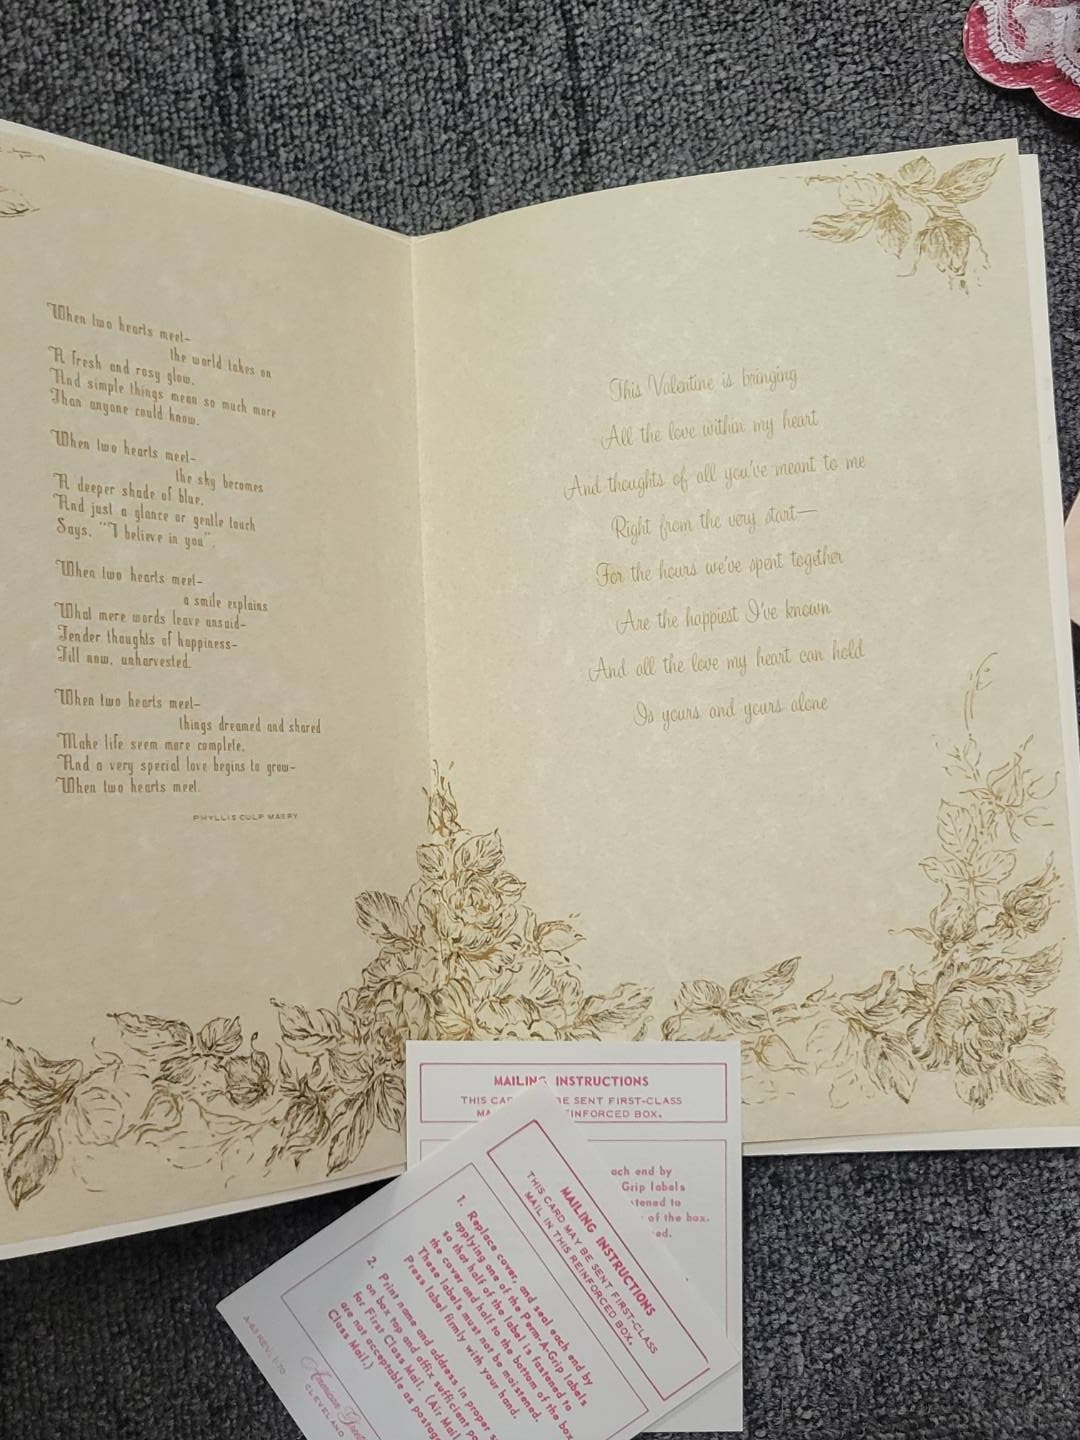 When two hearts meet-
the world takes on
A fresh and rosy glow.
And simple things mean so much more
Than anyone could know.
When two hearts meet-
the sky becomes
A deeper shade of blue.
And just a glance or gentle touch
Says, "I believe in you".
When two hearts meet-
a smile explains
What mere words leave unsaid-
Tender thoughts of happiness-
Till now, unharvested.
When two hearts meet-
things dreamed and shared
Make life seem more complete,
And a very special love begins to grow-
When two hearts meet.
PHYLLIS CULP MABRY
This Valentine is bringing
All the love within my heart
And thoughts of all you've meant to me
Right from the very start—
For the hours we've spent together
Are the happiest I've known
And all the love my heart can hold
Is yours and yours alone
MAILING INSTRUCTIONS
THIS CAR BE SENT FIRST-CLASS
MA REINFORCED BOX.
ach end by
Grip labels
stened to
of the box.
ed.
MAILING INSTRUCTIONS
THIS CARD MAY BE SENT FIRST-CLASS
MAIL IN THIS REINFORCED BOX.
1. Replace cover, and seal each end by
applying one of the Perm-A-Grip labels
so that half of the label is fastened to
the cover and half to the bottom of the box.
These labels must not be moistened.
Press label firmly with your hand.
2. Print name and address in proper s
on box top and affix sufficient po
for First Class Mail. (Air Mail
are not acceptable as postag
Class Mail.)
A-63 REV. 1-70
American Greet
CLEVELAND